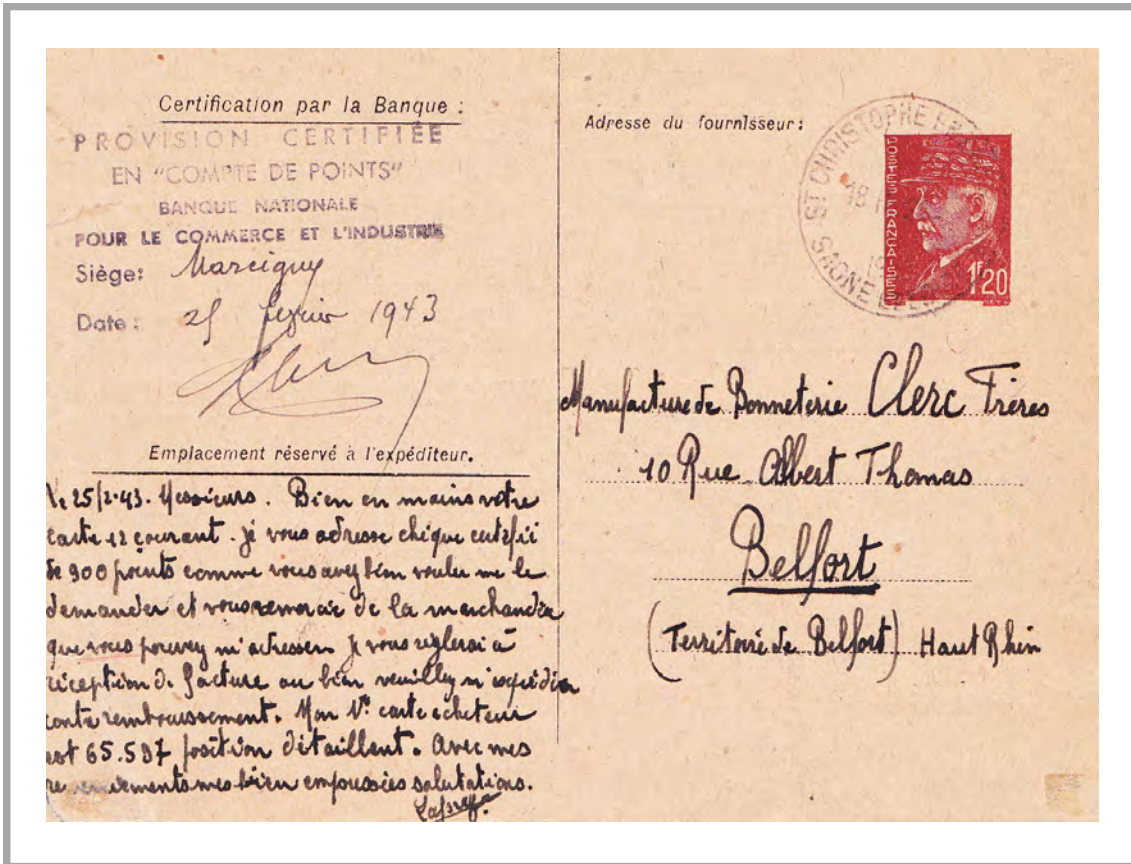 Certification par la Banque :
PROVISION CERTIFIÉE
EN "COMPTE DE POINTS"
BANQUE NATIONALE
POUR LE COMMERCE ET L'INDUSTRIE
Siège: Marcigny
Date : 25 février 1943
Emplacement réservé à l'expéditeur.
25/2-43. Messieurs. Bien en mains votre
carte 12 courant. je vous adresse chèque certifié
de 900 points comme vous avez bien voulu me le
demander et vous remercie de la marchandise
que vous pouvez m'adresser je vous règlerai à
réception de facture ou bien veuillez m'expédier
contre remboursement. Mon N° carte acheteur
est 65.597 position détaillant. Avec mes
remerciements mes bien empressées salutations.
Adresse du fournisseur:
ST CHRISTOPHE EN
18
SAONE ET
POSTES FRANÇAISES
1F20
Manufacture de Bonneterie Clerc Frères
10 Rue Albert Thomas
Belfort
(Territoire de Belfort) Haut Rhin